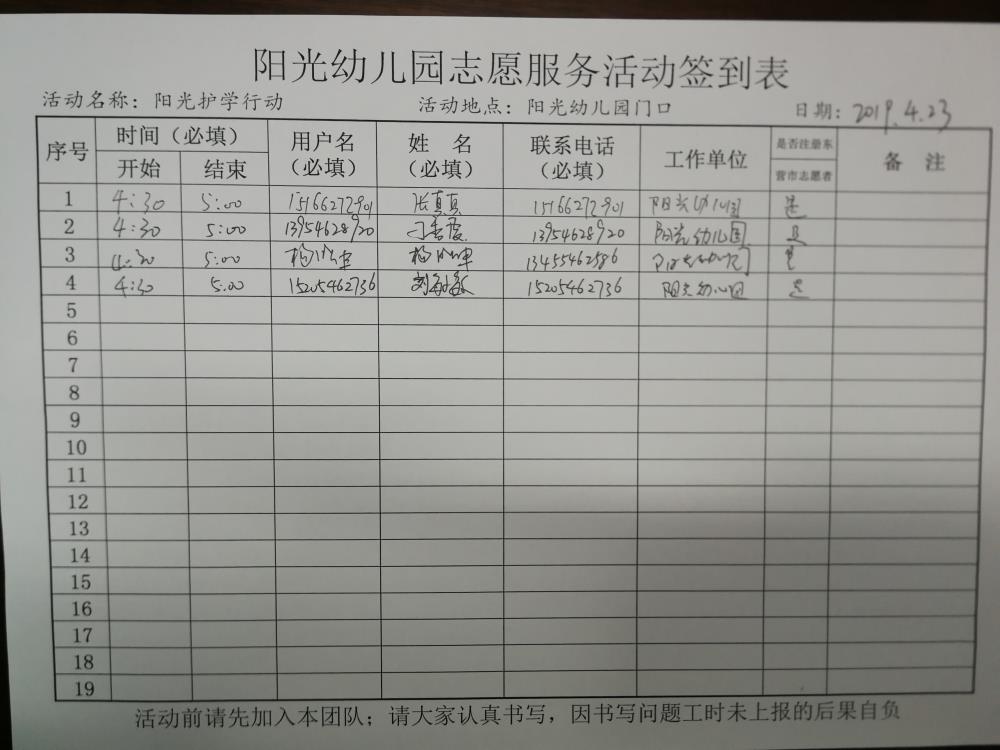 阳光幼儿园志愿服务活动签到表
活动名称：阳光护学行动 活动地点：阳光幼儿园门口 日期：2019.4.23
序号 时间（必填） 用户名（必填） 姓名（必填） 联系电话（必填） 工作单位 是否注册东营市志愿者 备注
开始 结束
1 4:30 5:00 15166272901 张真真 15166272901 阳光幼儿园 是
2 4:30 5:00 13954628920 13954628920 阳光幼儿园 是
3 4:30 5:00 杨 杨 13455462586 阳光幼儿园 是
4 4:30 5:00 15205462736 刘敏敏 15205462736 阳光幼儿园 是
5
6
7
8
9
10
11
12
13
14
15
16
17
18
19
活动前请先加入本团队；请大家认真书写，因书写问题工时未上报的后果自负